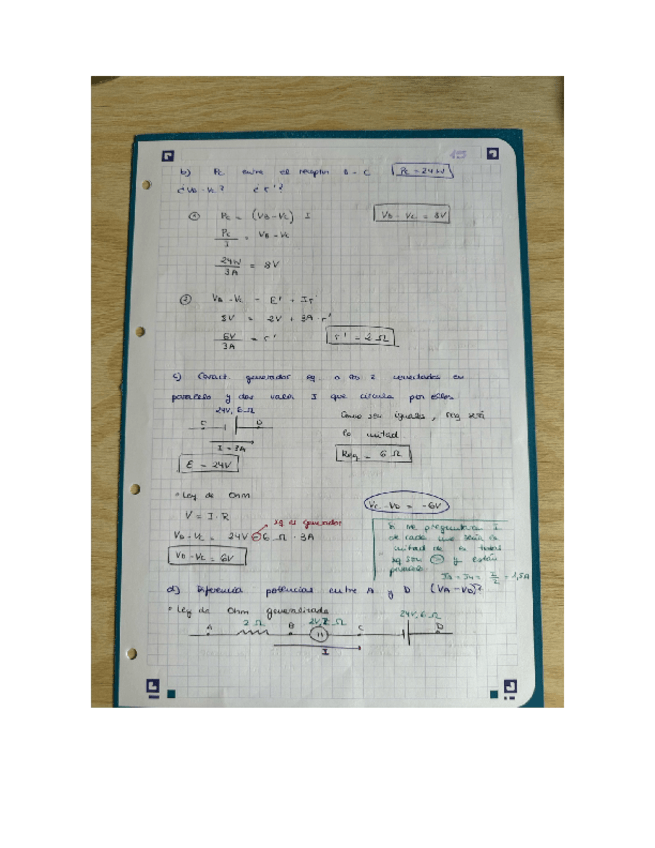 15
b) Pc entre el receptor B - C Pc = 24W
¿VB - Vc? ¿r'?
① Pc = (VB - Vc) I VB - Vc = 8V
Pc / I = VB - Vc
24W / 3A = 8V
② VB - Vc = E' + Ir'
8V = 2V + 3A · r'
6V / 3A = r' r' = 2 Ω
c) Caract. generador eq. a los 2 conectados en
paralelo y dar valor I que circula por ellos
24V, 6 Ω
C D
I = 3A
E = 24V
Como son iguales, req será
la mitad
Req = 6 Ω
• Ley de Ohm
V = I · R
Vc - VD = -6V
xq es generador
VD - Vc = 24V - 6 Ω · 3A
VD - Vc = 6V
Si me preguntan I
de cada una sería la
mitad de la
xq son = y están
paralelo
I3 = I4 = I/2 = 1,5A
d) Diferencia potencias entre A y D (VA - VD)?
• Ley de Ohm generalizada
A 2 Ω B 2V, 2 Ω C 24V, 6 Ω D
I